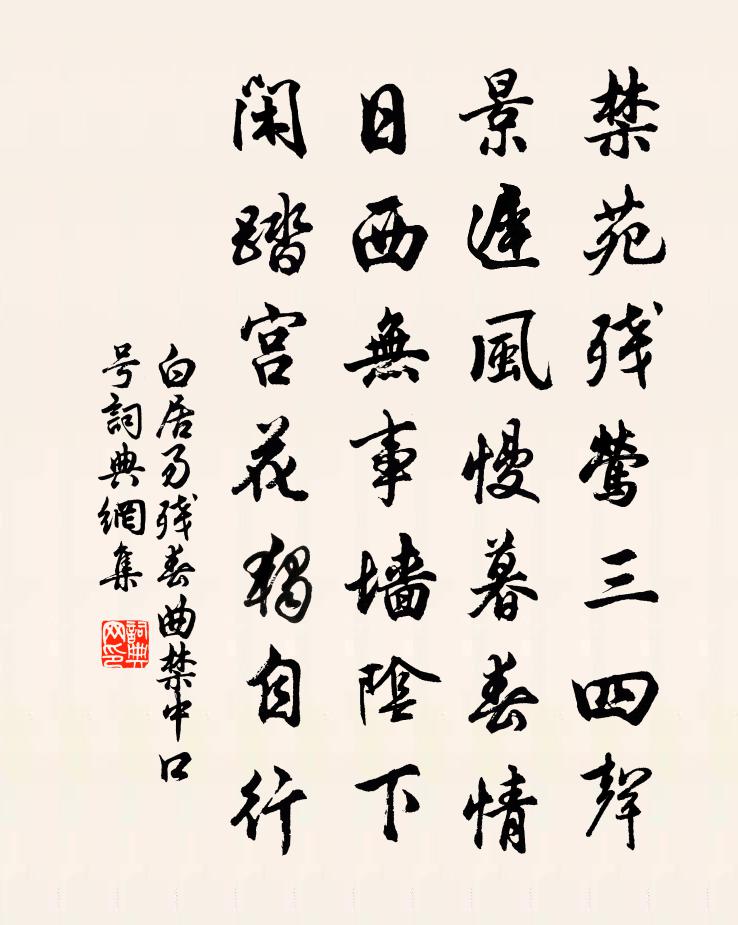 禁苑残鶯三四聲
景遲風慢暮春情
日西無事墻陰下
闲踏宫花獨自行
白居易残春曲禁中口
号詞典網集
詞典网印